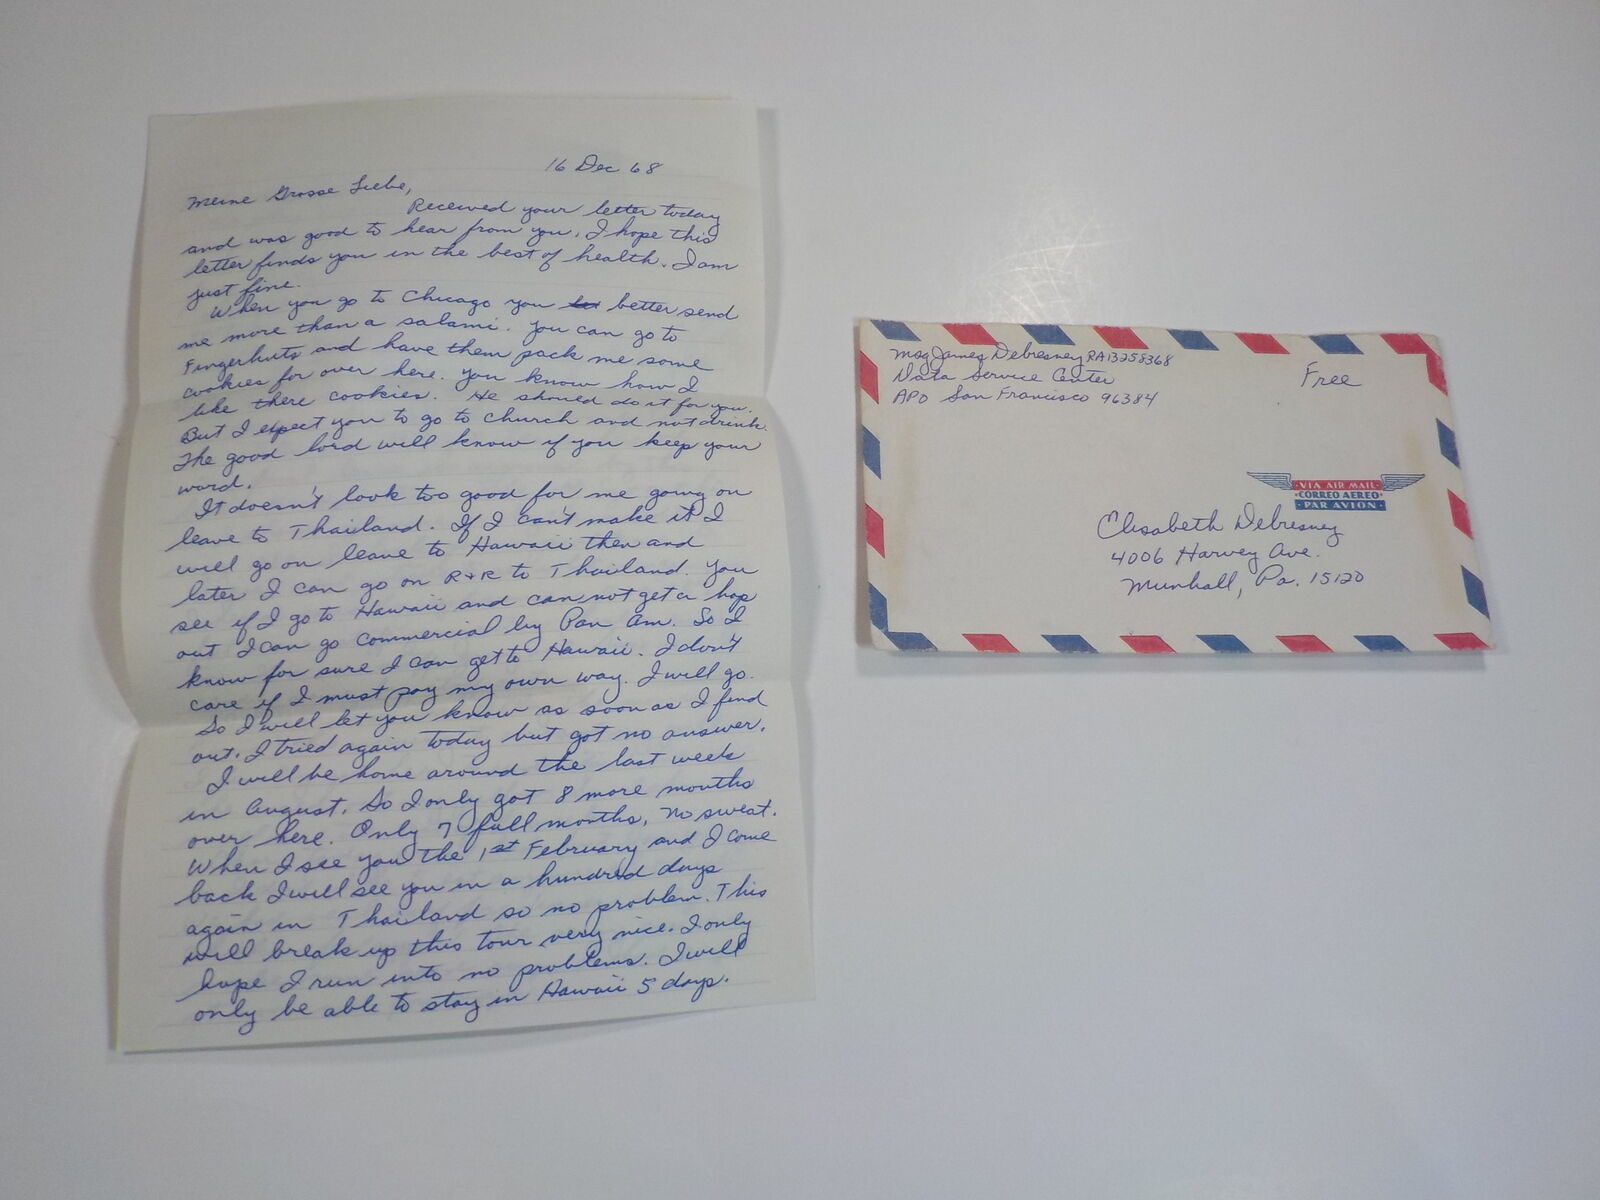 16 Dec 68
Meine Grosse Liebe,
Received your letter today
and was good to hear from you. I hope this
letter finds you in the best of health. I am
just fine.
When you go to Chicago you better send
me more than a salami. You can go to
Fingerhuts and have them pack me some
cookies for over here. You know how I
like there cookies. He should do it for you.
But I expect you to go to church and not drink.
The good lord will know if you keep your
word.
It doesn't look too good for me going on
leave to Thailand. If I can't make it I
will go on leave to Hawaii then and
later I can go on R+R to Thailand. You
see if I go to Hawaii and can not get a hop
out I can go commercial by Pan Am. So I
know for sure I can get to Hawaii. I don't
care if I must pay my own way. I will go.
So I will let you know as soon as I find
out. I tried again today but got no answer.
I will be home around the last week
in August. So I only got 8 more months
over here. Only 7 full months, no sweat.
When I see you the 1st February and I come
back I will see you in a hundred days
again in Thailand so no problem. This
will break up this tour very nice. I only
hope I run into no problems. I will
only be able to stay in Hawaii 5 days.
Msg James Debresney RA13258368
Data Service Center
APO San Francisco 96384
Free
VIA AIR MAIL
CORREO AEREO
PAR AVION
Elisabeth Debresney
4006 Harvey Ave.
Munhall, Pa. 15120